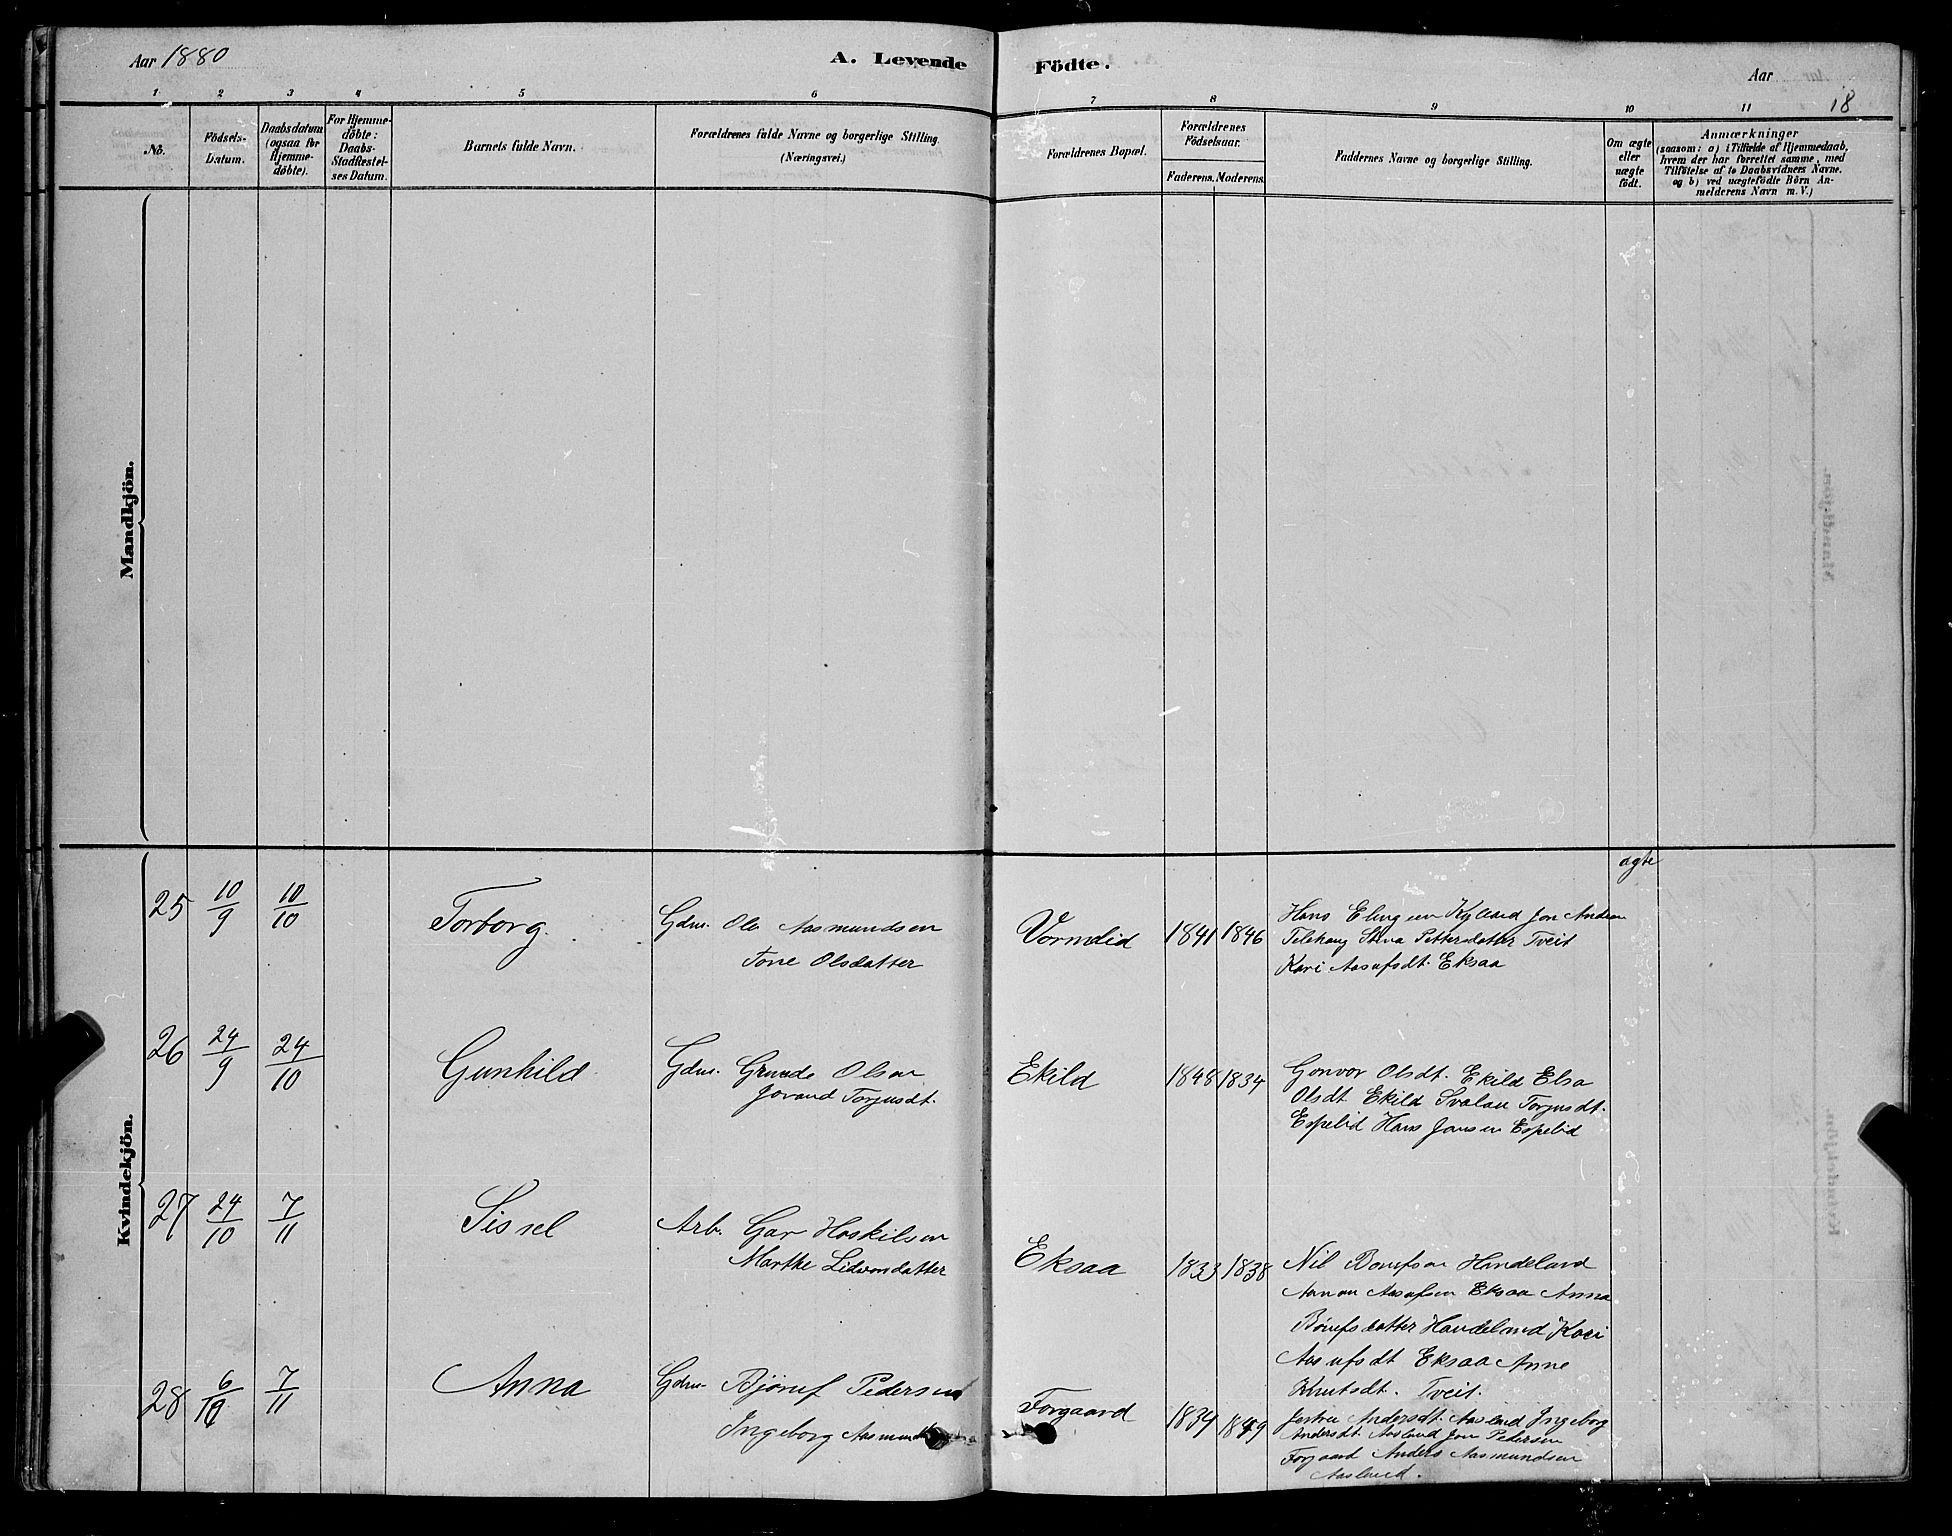 Aar 1880
A. Levende Födte.
Aar
18
1 2 3 4 5 6 7 8 9 10 11
No.
Födsels-
Datum.
Daabsdatum
(ogsaa for
Hjemme-
döbte).
For Hjemme-
döbte:
Daabs-
Stadfæstel-
ses Datum.
Barnets fulde Navn.
Forældrenes fulde Navne og borgerlige Stilling.
(Næringsvei.)
Forældrenes Bopæl.
Forældrenes
Födselsaar.
Faderens. Moderens.
Faddernes Navne og borgerlige Stilling.
Om ægte
eller
uægte
födt.
Anmærkninger
(saasom: a) i Tilfælde af Hjemmedaab,
hvem der har forrettet samme, med
Tilföielse af to Daabsvidners Navne.
og b) ved uægtefödte Börn An-
melderens Navn m. V.)
Mandkjön.
Kvindekjön.
ægte
25 10/9 10/10 Torborg. Gdm. Ole Aasmundsen
Tone Olsdatter
Vormelid 1841 1846
Hans Kylland Jon
Stina Pettersdatter Tveit
Kari Aasufsdt. Eksaa
26 24/9 24/10 Gunhild Gdm. Grunde Olsen
Jorand Torjusdt.
Ekild 1848 1834
Gonvor Olsdt. Ekild Elsa
Olsdt Ekild Svalau Torjusdt.
Espelid Hans Jansen Espelid
27 24/10 7/11 Sissel Arb. Gar Hoskilsen
Marthe
Eksaa 1833 1838
Nil Handeland
Aasufsen Eksaa Anna
Handeland Kari
Aasufsdt Eksaa Anne
Knutsdt. Tveit.
28 7/11 Anna Gdm. Bjönuf Pedersen
Ingeborg
Forgaard 1834 1849
Andersdt. Aasland Ingeborg
Andersdt Aasland Jon Pedersen
Forgaard Anders Aasmundsen
Aasland.